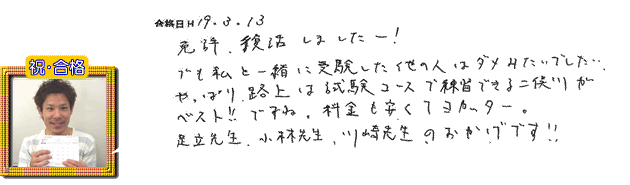 合格日H19.3.13
免許、復活しましたー!
祝・合格
でも私と一緒に受験した他の人はダメみたいでした…
やっぱり路上は試験コースで練習できる二俣川が
ベスト!!ですね。料金も安くてヨカッター。
足立先生、小林先生、川崎先生のおかげです!!